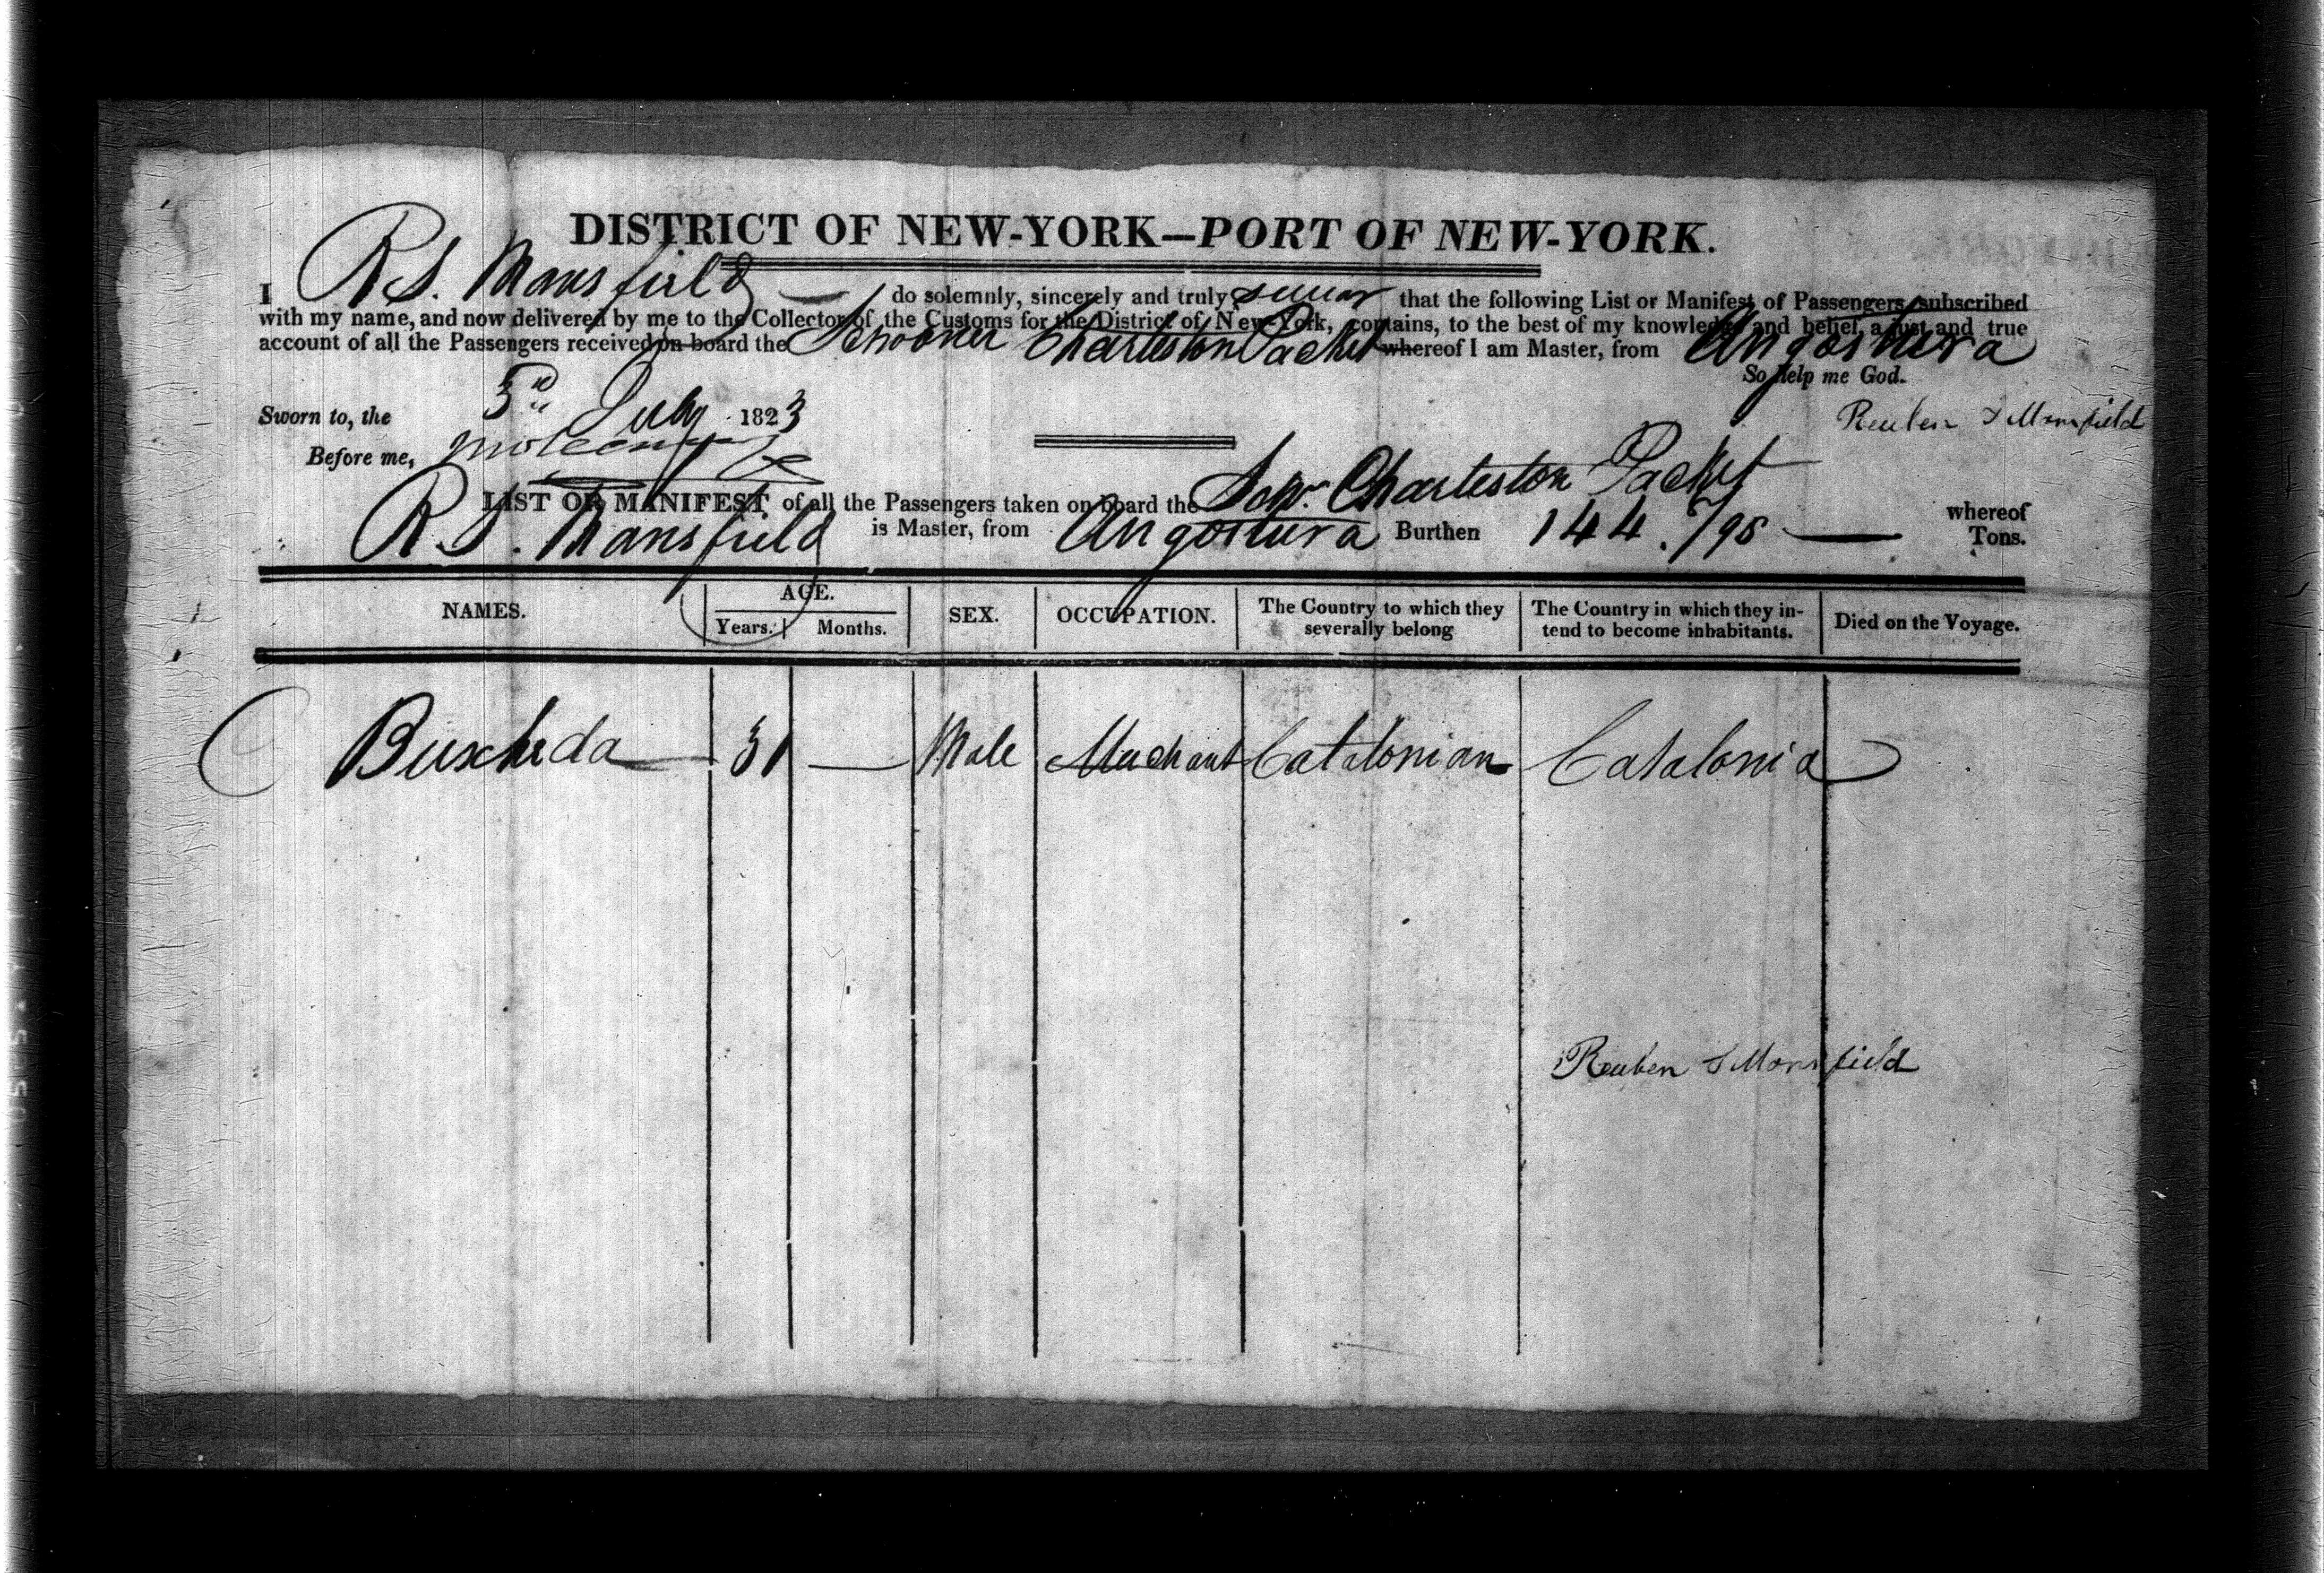 DISTRICT OF NEW-YORK—PORT OF NEW-YORK.
I R S. Mansfield do solemnly, sincerely and truly swear that the following List or Manifest of Passengers subscribed
with my name, and now delivered by me to the Collector of the Customs for the District of New-York, contains, to the best of my knowledge and belief, a just and true
account of all the Passengers received on board the Schooner Charleston Packet whereof I am Master, from Angostura
So help me God.
Sworn to, the 3rd July 1823
Reuben S Mansfield
Before me,
LIST OR MANIFEST of all the Passengers taken on board the Schr Charleston Packet whereof
R S. Mansfield is Master, from Angostura Burthen 144. /95 Tons.
NAMES. AGE. Years. Months. SEX. OCCUPATION. The Country to which they severally belong The Country in which they intend to become inhabitants. Died on the Voyage.
31 — Male Merchant Catalonian Catalonia
Reuben S Mansfield